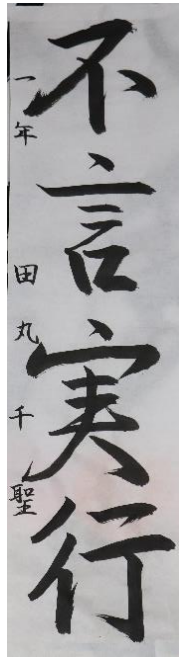 不言実行
一年 田丸千聖